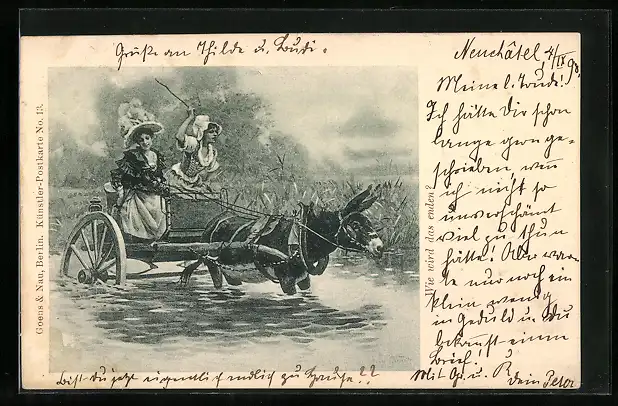 Grüße an Thilde u. Ludi.
Neuchâtel 4/IX 98.
Meine l. Trude!
Ich hätte Dir schon
lange gern ge-
schrieben, wenn
ich nicht so
unverschämt
viel zu thun
hätte! Aber war-
te nur noch ein
klein wenig
in Geduld u. Du
bekommst einen
Brief!
Mit Gr. u. K.
Dein Peter
Bist Du jetzt eigentlich endlich zu Hause??
Wie wird das enden?
Goens & Nau, Berlin. Künstler-Postkarte No. 13.